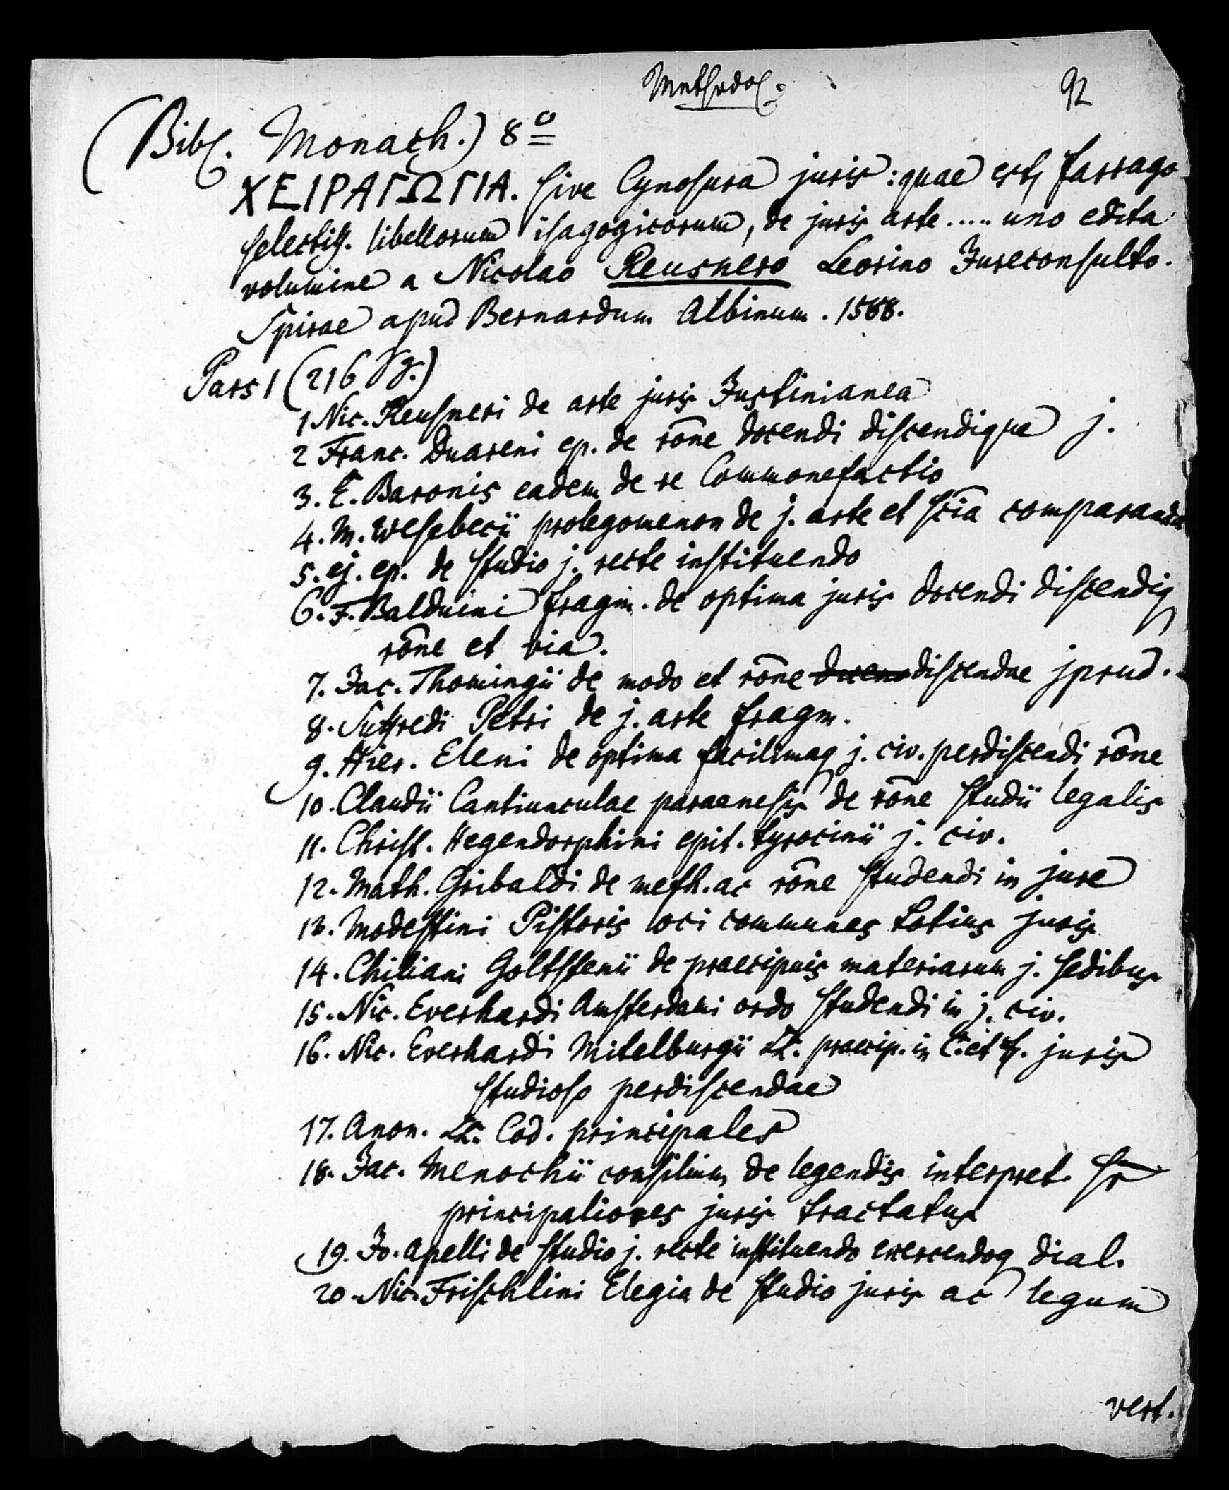 Methodol.
92
(Bibl. Monach.) 8o
ΧΕΙΡΑΓΩΓΙΑ. sive Cynosura juris: quae est, farrago
selectiss. libellorum isagogicorum, de juris arte ..... uno edita
volumine a Nicolao Reusnero Leorino Jureconsulto.
Spirae apud Bernardum Albinum. 1588.
Pars 1 (216 Sg.)
1 Nic. Reusneri de arte juris Justinianea
2 Franc. Duareni ep. de rône docendi discendique j.
3. E. Baronis eadem de re Commonefactio
4. M. Wesebecii prolegomenon de j. arte et scîa comparanda
5. ej. ep. de studio j. recte instituendo
6. F. Balduini fragm. de optima juris docendi discendiq
rône et via.
7. Jac. Thomingii de modo et rône docend discendae jprud.
8. Suffredi Petri de j. arte fragm.
9. Hier. Eleni de optima facilimaq j. civ. perdiscendi rône
10. Claudii Cantiunculae paraenesis de rône studii legalis
11. Christ. Hegendorphini epit. tyrocinii j. civ.
12. Math. Gribaldi de meth. ac rône studendi in jure
13. Modestini Pistoris loci communes totius juris
14. Chiliani Goltstenii de praecipuis materiarum j. sedibus
15. Nic. Everhardi Amsterdami ordo studendi in j. civ.
16. Nic. Everhardi Mitelburgii LL. praecip. in C. et ff. juris
studioso perdiscendae
17. Anon. LL. Cod. principales
18. Jac. Menochii consilium de legendis interpret. sr
principaliores juris tractatus
19. Jo. Apelli de studio j. recte instituendo exercendoq dial.
20. Nic. Frischlini Elegia de studio juris ac legum
vert.